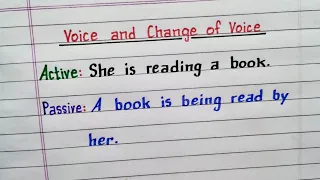 Voice and Change of Voice
Active: She is reading a book.
Passive: A book is being read by
her.